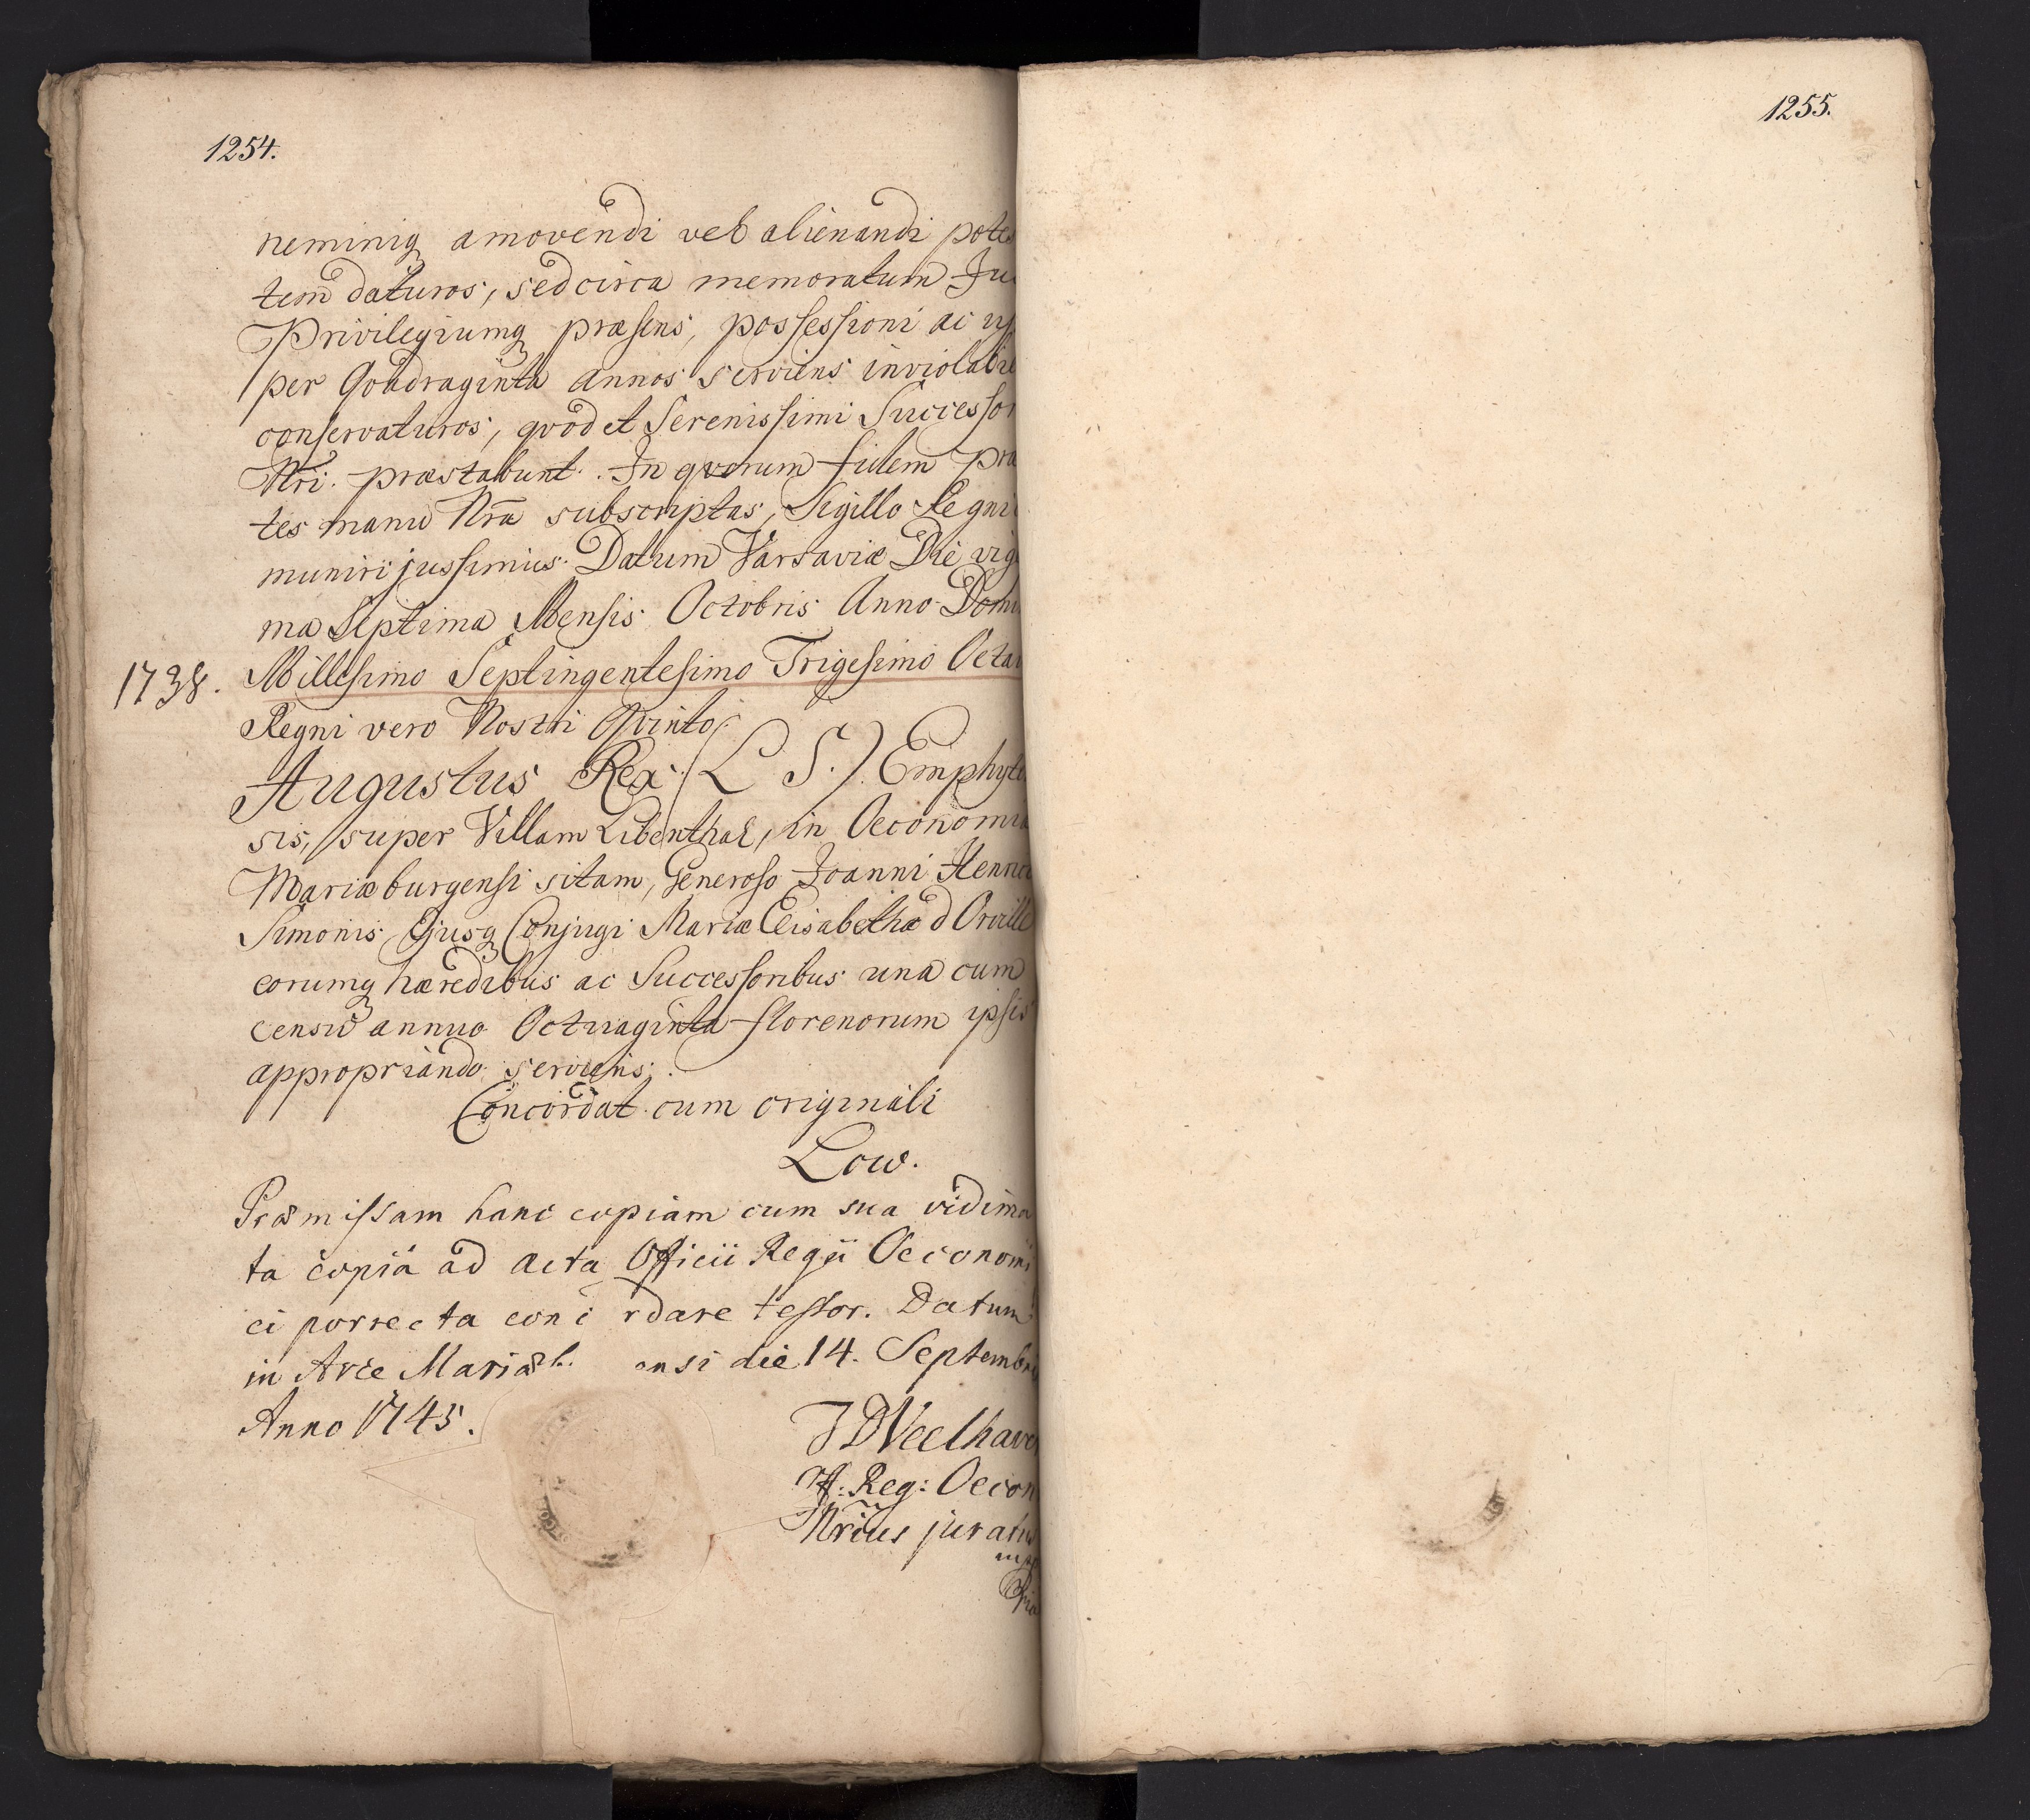 1254.
neminiq amovendi vel alienandi potes
tem daturos, sed circa memoratum
Privilegiumq præsens, possessioni ac
per Qvadraginta annos serviens inviolabil
conservaturos, qvod et Serenissimi Successor
Nri. præstabunt. In qvorum fidem præ
tes manu Nrã subscriptas, Sigillo Regni
muniri jussimus. Datum Varsaviæ Die vig
ma Septima Mensis Octobris Anno Domi
1738. Millesimo Septingentesimo Trigesimo Octa
Regni vero Nostri Qvinto.
Augustus Rex. (L S.). Emphyte
sis, super Villam Libenthal, in Oeconomia
Mariæburgensi sitam, Generoso Joanni Henrico
Simonis Ejusq Conjugi Mariæ Elisabethæ d Orville
eorumq hæredibus ac Successoribus una cum
censu annuo Octuaginta florenorum ipsis
appropriando serviens.
Concordat cum originali
Low.
Præmissam hanc copiam cum sua vidima
ta copia ad acta Officii Regii Oeconomi
ci porrecta conc rdare testor. Datum
in Arce Mariæb ensi die 14. Septembris
Anno 1745.
J D Veelhaver
Off: Reg: Oecon
Nrius juratus
mpp
1255.